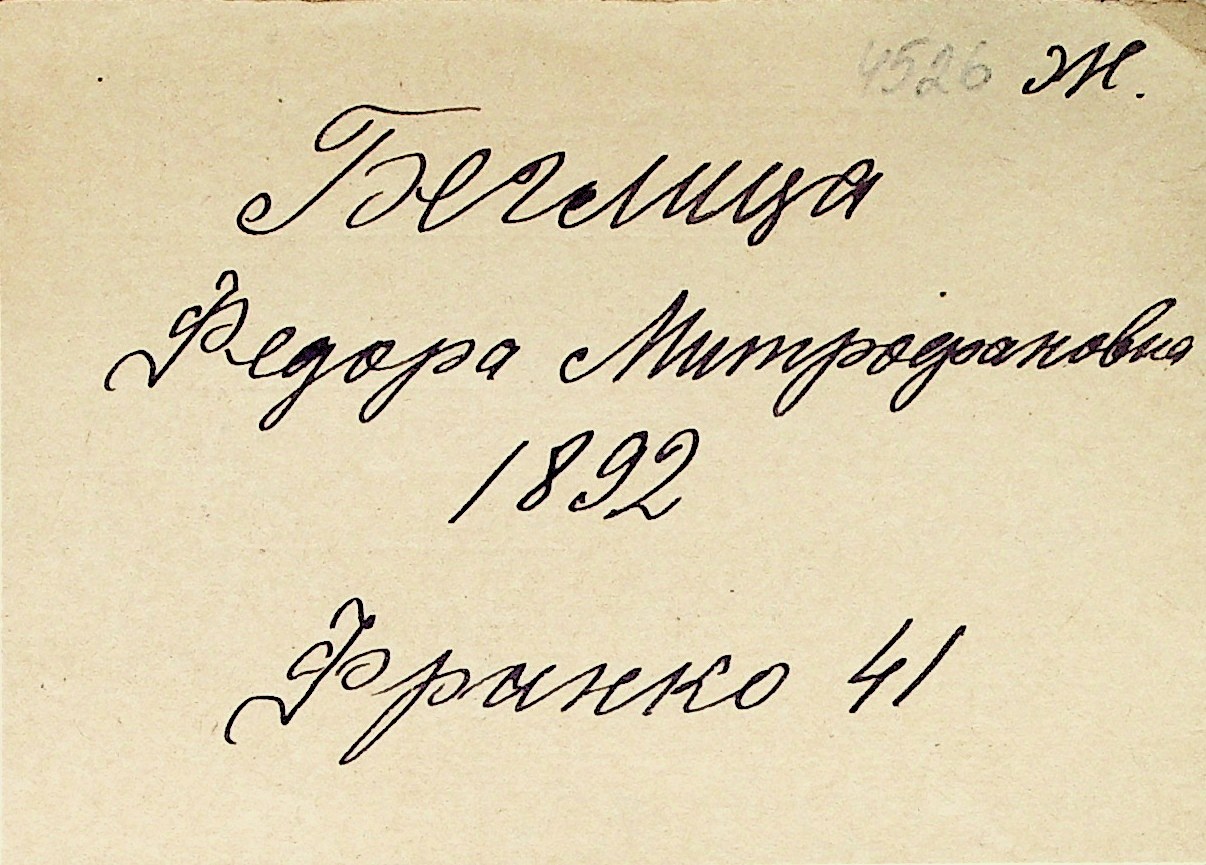 4526 Ж.
Беглица
Федора Митрофановна
1892
Франко 41